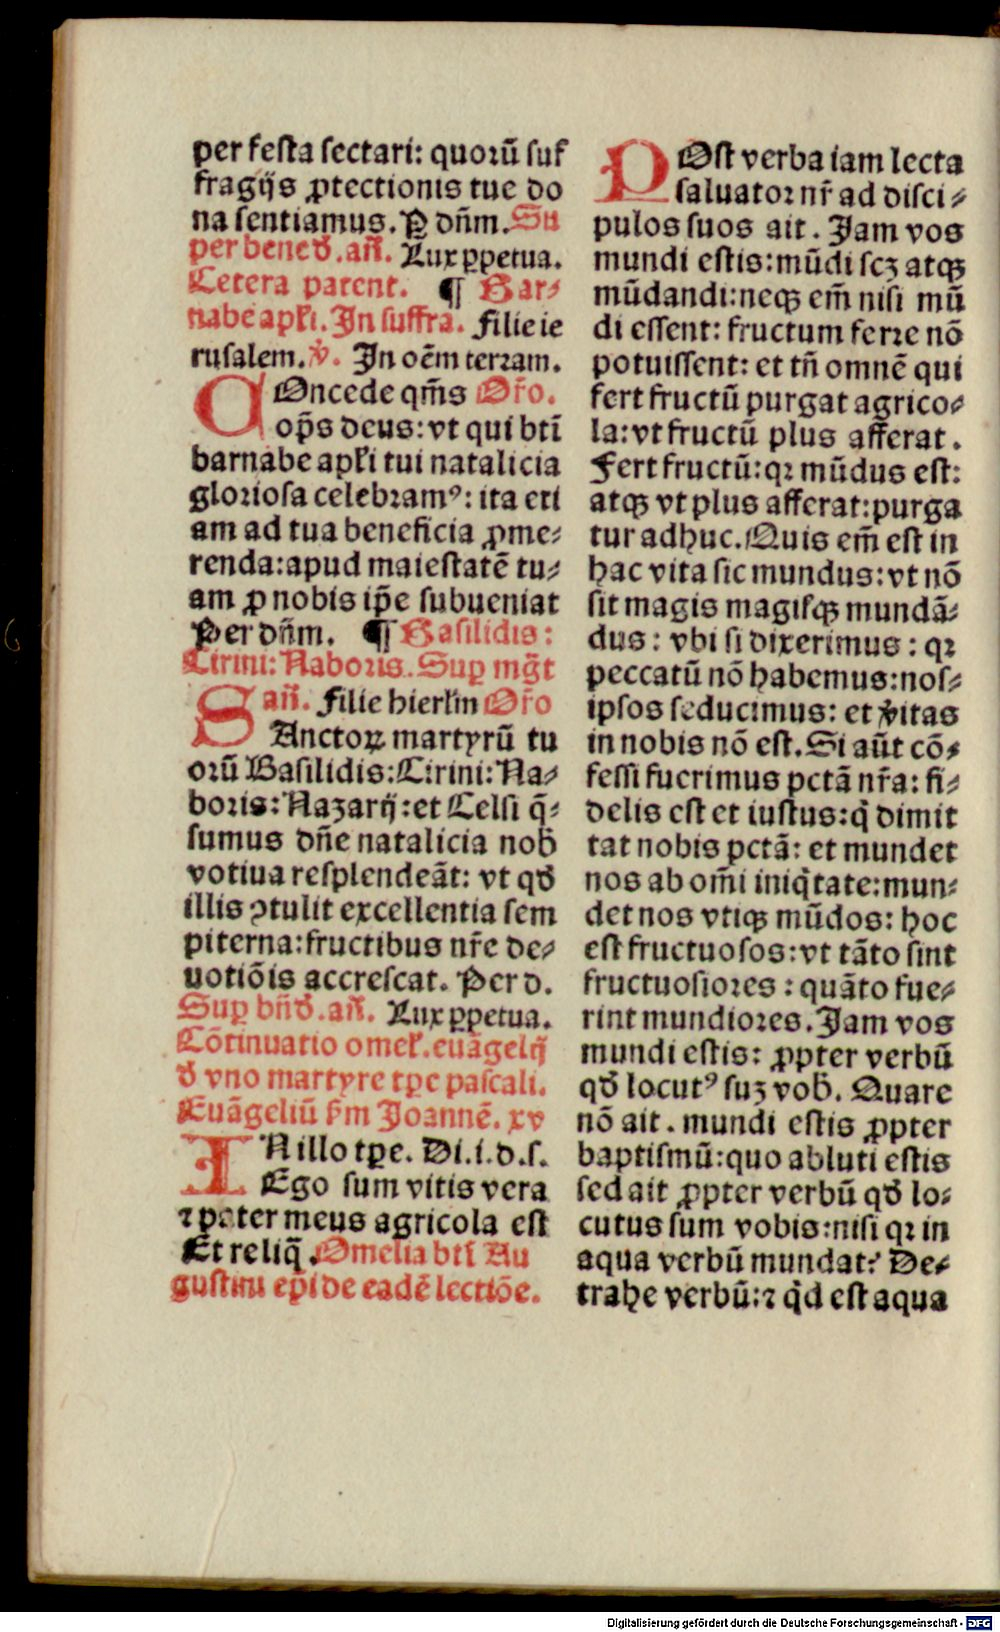 per festa sectari: quorū suf
fragijs ꝓtectionis tue do
na sentiamus. P dn̄m. Su
per bened. an̄. Lux ꝑpetua.
Cetera patent. ¶ Bar⸗
nabe apłi. In suffra. Filie ie
rusalem. ℣. In oēm terram.
COncede qm̄s Or̄o.
op̄s deus: vt qui btī
barnabe apłi tui natalicia
gloriosa celebramꝰ: ita eti
am ad tua beneficia ꝓme⸗
renda: apud maiestatē tu⸗
am ꝓ nobis ip̄e subueniat
Per dn̄m. ¶ Basilidis:
Cirini: Naboris. Suꝑ mḡt
an̄. Filie hierłm Or̄o
SAnctoꝝ martyrū tu
orū Basilidis: Cirini: Na⸗
boris: Nazarij: et Celsi q̄⸗
sumus dn̄e natalicia nob̄
votiua resplendeāt: vt qd̄
illis ꝯtulit excellentia sem
piterna: fructibus nr̄e de⸗
uotiōis accrescat. Per d.
Suꝑ bn̄d. an̄. Lux ꝑpetua.
Cōtinuatio omeł. euāgelij
d̄ vno martyre tꝑe pascali.
Euāgeliū ẜm Joannē. xv
IN illo tꝑe. Di. i. d. s.
Ego sum vitis vera
⁊ pater meus agricola est
Et reliq̄. Omelia btī Au
gustini ep̄i de eadē lectiōe.
POst verba iam lecta
saluator nr̄ ad disci⸗
pulos suos ait. Jam vos
mundi estis: mūdi scꝫ atqꝫ
mūdandi: neqꝫ em̄ nisi mū
di essent: fructum ferre nō
potuissent: et tn̄ omnē qui
fert fructū purgat agrico⸗
la: vt fructū plus afferat.
Fert fructū: qꝛ mūdus est:
atqꝫ vt plus afferat: purga
tur adhuc. Quis em̄ est in
hac vita sic mundus: vt nō
sit magis magisqꝫ mundā⸗
dus: vbi si dixerimus: qꝛ
peccatū nō habemus: nos⸗
ipsos seducimus: et v̓itas
in nobis nō est. Si aūt cō⸗
fessi fuerimus pctā nr̄a: fi⸗
delis est et iustus: q̇ dimit
tat nobis pctā: et mundet
nos ab om̄i iniq̇tate: mun⸗
det nos vtiqꝫ mūdos: hoc
est fructuosos: vt tāto sint
fructuosiores: quāto fue⸗
rint mundiores. Jam vos
mundi estis: ꝓpter verbū
qd̄ locutꝰ suꝫ vob̄. Quare
nō ait. mundi estis ꝓpter
baptismū: quo abluti estis
sed ait ꝓpter verbū qd̄ lo⸗
cutus sum vobis: nisi qꝛ in
aqua verbū mundat? De⸗
trahe verbū: ⁊ q̇d est aqua
Digitalisierung gefördert durch die Deutsche Forschungsgemeinschaft - DFG